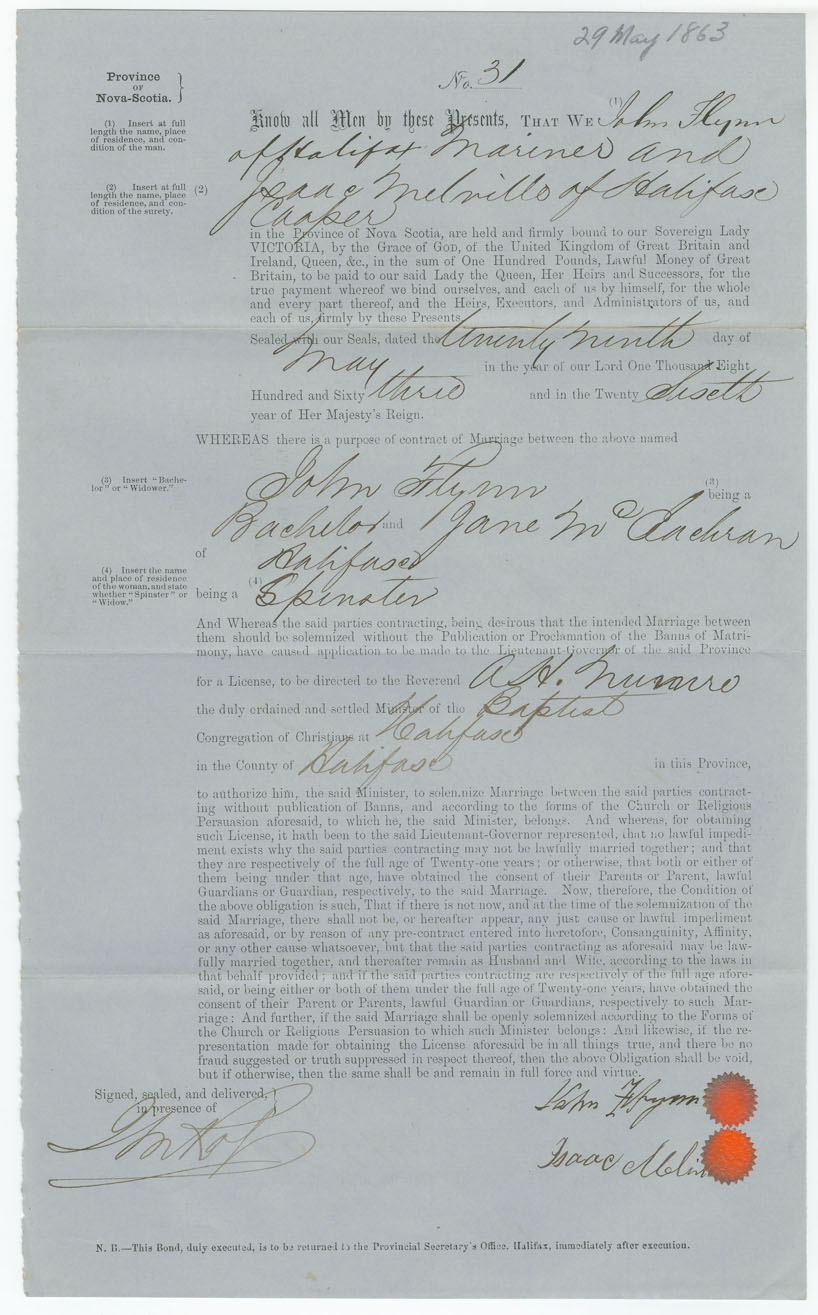 29 May 1863
Province
OF
Nova-Scotia.
No. 31
(1) Insert at full
length the name, place
of residence, and con-
dition of the man.
Know all Men by these Presents, THAT WE (1) John Flynn
of Halifax Mariner and
(2) Insert at full
length the name, place
of residence, and con-
dition of the surety.
(2) Isaac Melville of Halifax
Cooper
in the Province of Nova Scotia, are held and firmly bound to our Sovereign Lady
VICTORIA, by the Grace of GOD, of the United Kingdom of Great Britain and
Ireland, Queen, &c., in the sum of One Hundred Pounds, Lawful Money of Great
Britain, to be paid to our said Lady the Queen, Her Heirs and Successors, for the
true payment whereof we bind ourselves, and each of us by himself, for the whole
and every part thereof, and the Heirs, Executors, and Administrators of us, and
each of us, firmly by these Presents.
Sealed with our Seals, dated the twenty ninth day of
May in the year of our Lord One Thousand Eight
Hundred and Sixty three and in the Twenty Sixth
year of Her Majesty's Reign.
WHEREAS there is a purpose of contract of Marriage between the above named
(3) Insert "Bache-
lor" or "Widower."
John Flynn (3) being a
Bachelor and Jane McEachran
of Halifax
(4) Insert the name
and place of residence
of the woman, and state
whether "Spinster" or
"Widow."
being a (4) Spinster
And Whereas the said parties contracting, being desirous that the intended Marriage between
them should be solemnized without the Publication or Proclamation of the Banns of Matri-
mony, have caused application to be made to the Lieutenant-Governor of the said Province
for a License, to be directed to the Reverend A. H. Munro
the duly ordained and settled Minister of the Baptist
Congregation of Christians at Halifax
in the County of Halifax in this Province,
to authorize him, the said Minister, to solemnize Marriage between the said parties contract-
ing without publication of Banns, and according to the forms of the Church or Religious
Persuasion aforesaid, to which he, the said Minister, belongs. And whereas, for obtaining
such License, it hath been to the said Lieutenant-Governor represented, that no lawful impedi-
ment exists why the said parties contracting may not be lawfully married together; and that
they are respectively of the full age of Twenty-one years; or otherwise, that both or either of
them being under that age, have obtained the consent of their Parents or Parent, lawful
Guardians or Guardian, respectively, to the said Marriage. Now, therefore, the Condition of
the above obligation is such, That if there is not now, and at the time of the solemnization of the
said Marriage, there shall not be, or hereafter appear, any just cause or lawful impediment
as aforesaid, or by reason of any pre-contract entered into heretofore, Consanguinity, Affinity,
or any other cause whatsoever, but that the said parties contracting as aforesaid may be law-
fully married together, and thereafter remain as Husband and Wife, according to the laws in
that behalf provided; and if the said parties contracting are respectively of the full age afore-
said, or being either or both of them under the full age of Twenty-one years, have obtained the
consent of their Parent or Parents, lawful Guardian or Guardians, respectively to such Mar-
riage: And further, if the said Marriage shall be openly solemnized according to the Forms of
the Church or Religious Persuasion to which such Minister belongs: And likewise, if the re-
presentation made for obtaining the License aforesaid be in all things true, and there be no
fraud suggested or truth suppressed in respect thereof, then the above Obligation shall be void,
but if otherwise, then the same shall be and remain in full force and virtue.
Signed, sealed, and delivered,
in presence of
John Flynn
Isaac
N. B.—This Bond, duly executed, is to be returned to the Provincial Secretary's Office, Halifax, immediately after execution.